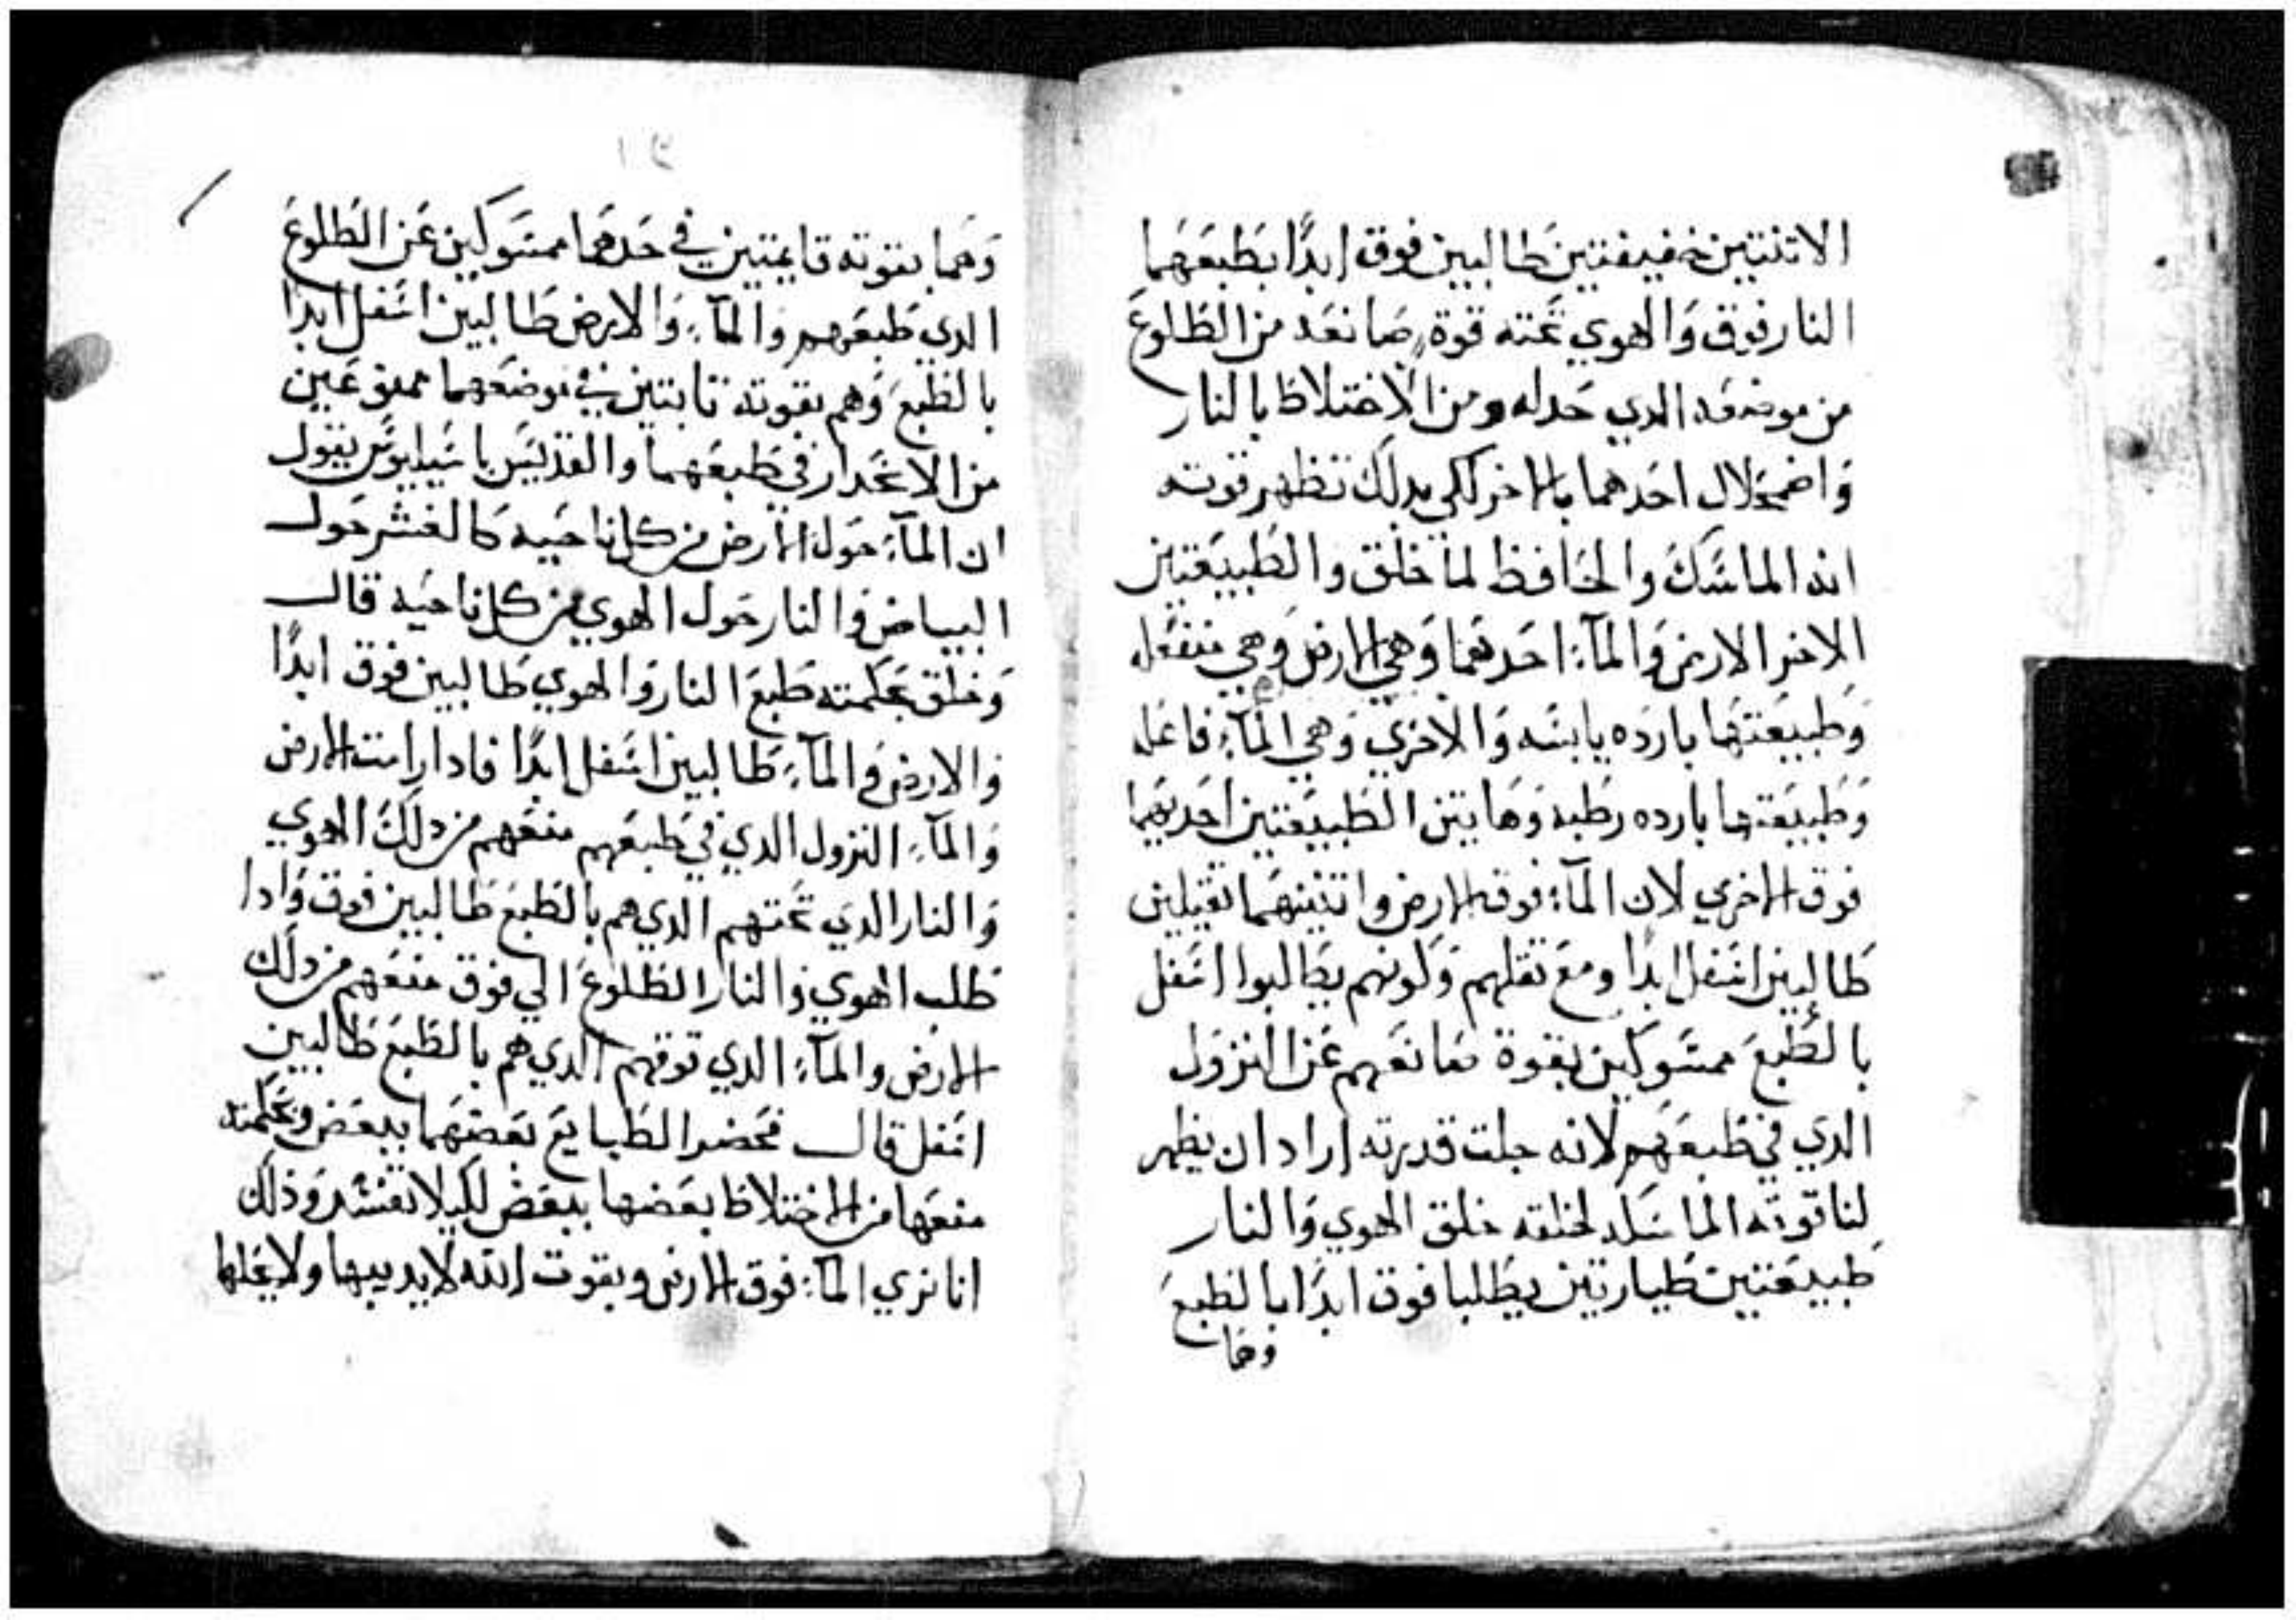 الاتنتين خفيفتين طالبين فوق ابدًا بطبعهما
النار فوق والهوي تحته قوة صانعه من الطلوع
من موضعه الدي حد له ومن الاختلاط بالنار
واضمحلال احدهما بالاخر لكي بدلك تظهر قوته
انه الماسك والحافظ لما خلق والطبيعتين
الاخر الارض والمآء احدتهما وهي الارض وهي منفعله
وطبيعتها بارده يابسه والاخري وهي المآء فاعله
وطبيعتها بارده رطبه وهاتين الطبيعتين احديهما
فوق الاخري لان المآء فوق الارض واتنينهما تقيلين
طالبين اسفل ابدًا ومع تقلهم وكونهم يطالبوا اسفل
بالطبع ممسوكين بقوة صانعهم عن النزول
الدي في طبعهم لانه جلت قدرته اراد ان يظهر
لنا قوته الماسكه لخلقه خلق الهوي والنار
طبيعتين طيارتين يطلبا فوق ابدًا بالطبع
وهما
١٢
وهما بقوته قايمتين في حدهما ممسوكين عن الطلوع
الدي طبعهم والمآء والارض طالبين اسفل ابدًا
بالطبع وهم بقوته تابتين في موضعهما ممنوعين
من الانحدار في طبعهما والقديس باسيليوس يقول
ان المآء حول الارض من كل ناحيه كالقشر حول
البياض والنار حول الهوي من كل ناحيه قال
وخلق بحكمته طبع النار والهوي طالبين فوق ابدًا
والارض والمآء طالبين اسفل ابدًا فادا رامت الارض
والمآء النزول الدي في طبعهم منعهم من دلك الهوي
والنار الدي تحتهم الدي هم بالطبع طالبين فوق وادا
طلب الهوي والنار الطلوع الي فوق منعهم من دلك
الارض والمآء الدي فوقهم الدي هم بالطبع طالبين
اسفل قال فحصر الطبايع بعضهما ببعض وبحكمته
منعها من الاختلاط بعضها ببعض لكيلا تفسد وذلك
انا نري المآء فوق الارض وبقوت الله لا يديبها ولا يحلها